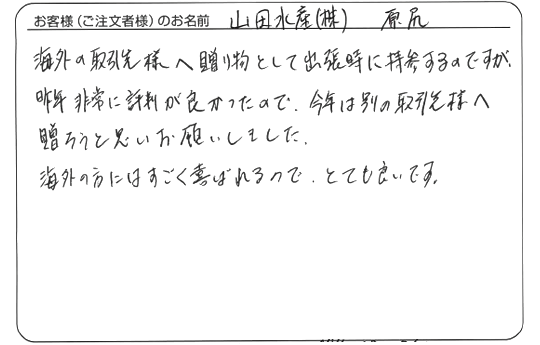 お客様(ご注文者様)のお名前 山田水産(株) 原尻
海外の取引先様へ贈り物として出張時に持参するのですが、
昨年非常に評判が良かったので、今年は別の取引先様へ
贈ろうと思いお願いしました。
海外の方にはすごく喜ばれるので、とても良いです。